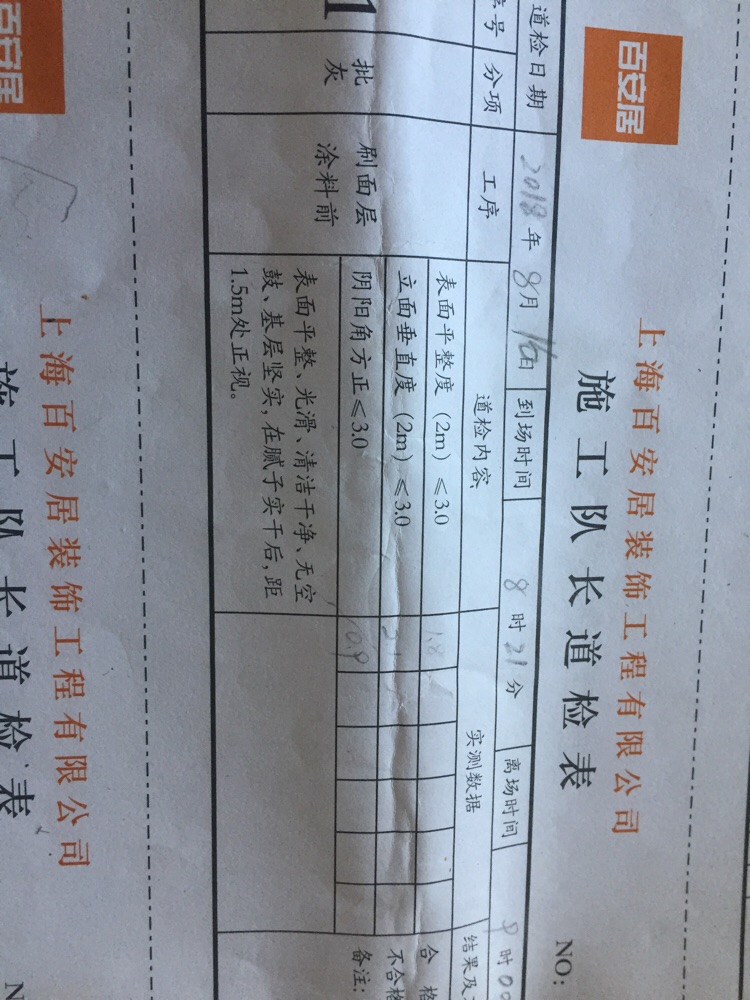 百安居
上海百安居装饰工程有限公司
施工队长道检表
NO:
道检日期 2018年8月16日 到场时间 8时21分 离场时间 9时00
号 分项 工序 道检内容 实测数据 结果及
1 批灰 刷面层涂料前
表面平整度（2m）≤3.0 1.8
合格
立面垂直度（2m）≤3.0
不合格
阴阳角方正≤3.0 0.9
备注:
表面平整、光滑、清洁干净、无空
鼓、基层坚实,在腻子实干后,距
1.5m处正视。
百安居
上海百安居装饰工程有限公司
施工队长道检表
N